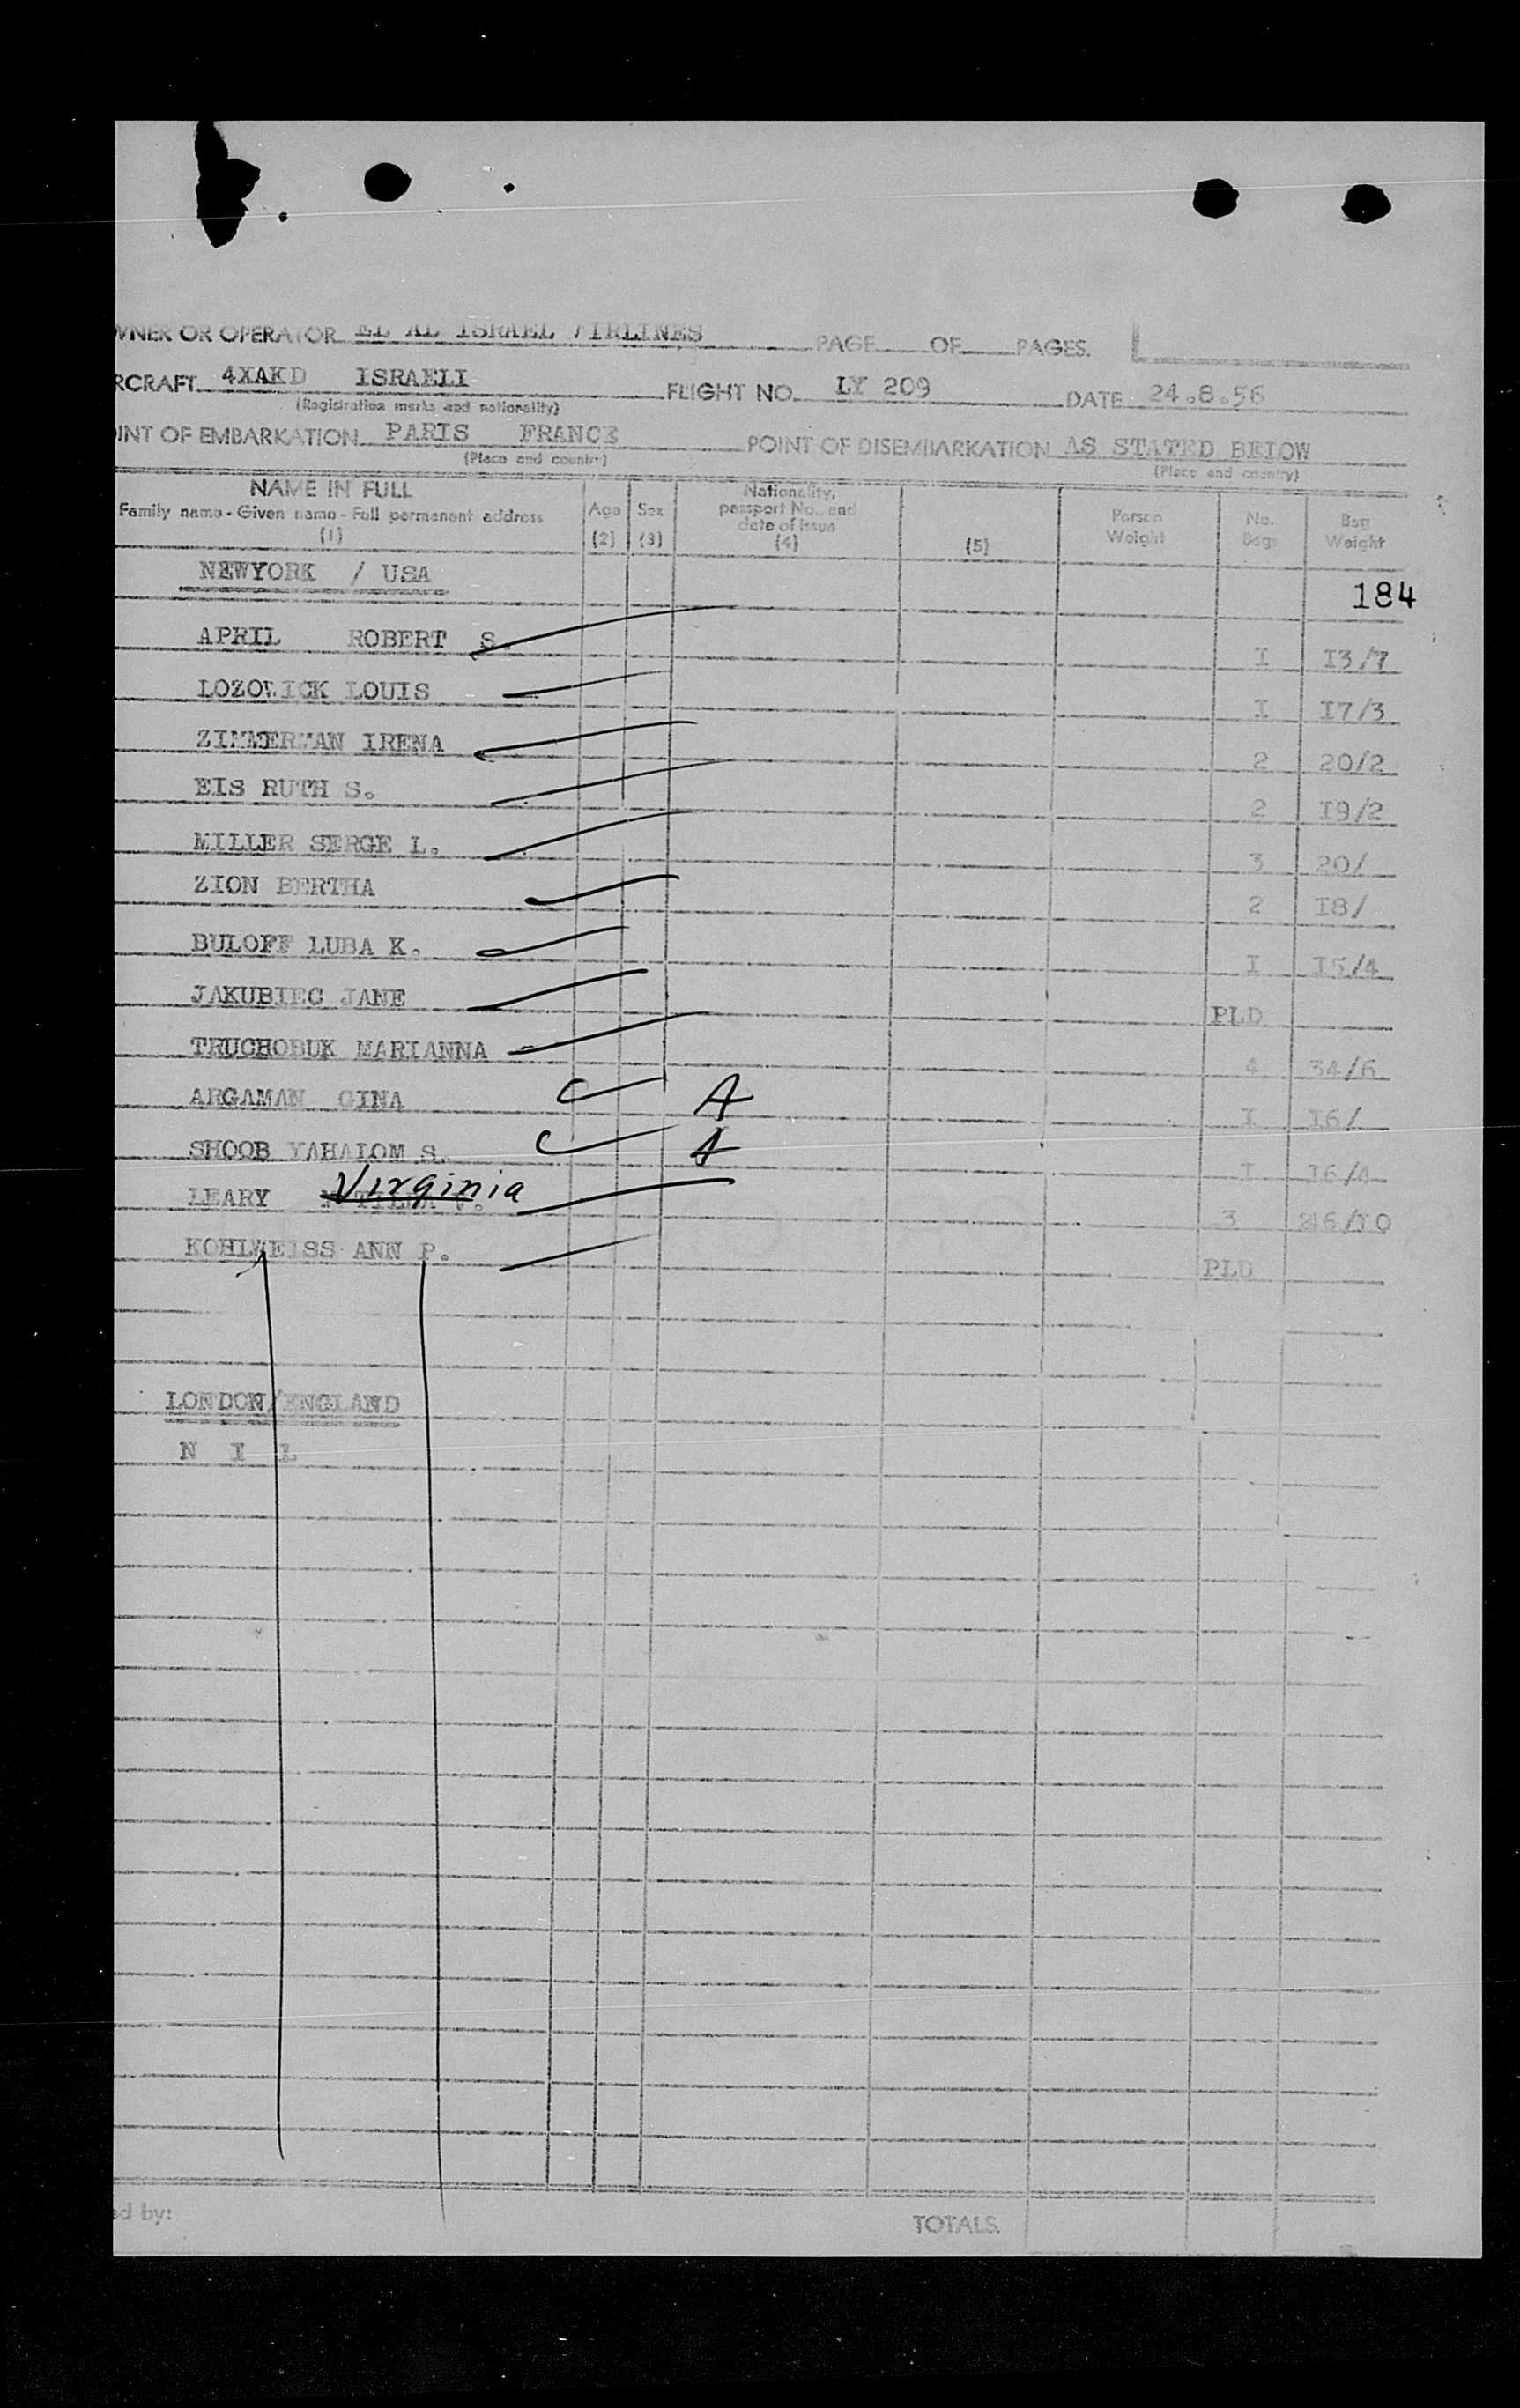 WNER OR OPERATOR EL AL ISRAEL AIRLINES PAGE OF PAGES.
RCRAFT 4XAKD ISRAELI FLIGHT NO. LY 209 DATE 24.8.56
(Registration marks and nationality)
INT OF EMBARKATION PARIS FRANCE POINT OF DISEMBARKATION AS STATED BELOW
(Place and country) (Place and country)
NAME IN FULL
Family name - Given name - Full permanent address
(1)
Age
(2)
Sex
(3)
Nationality,
passport No., and
date of issue
(4)
(5)
Person
Weight
No.
Bags
Bag
Weight
NEWYORK / USA
184
APRIL ROBERT S. I I3/7
LOZOWICK LOUIS I I7/3
ZIMMERMAN IRENA 2 20/2
EIS RUTH S. 2 I9/2
MILLER SERGE L. 3 20/
ZION BERTHA 2 I8/
BULOFF LUBA K. I I5/4
JAKUBIEC JANE PLD
TRUCHOBUK MARIANNA 4 34/6
ARGAMAN GINA A I I6/
SHOOB YAHALOM S. A I I6/4
LEARY Virginia 3 /I0
KOHLWEISS ANN P. PLD
LONDON/ENGLAND
N I L
ed by:
TOTALS